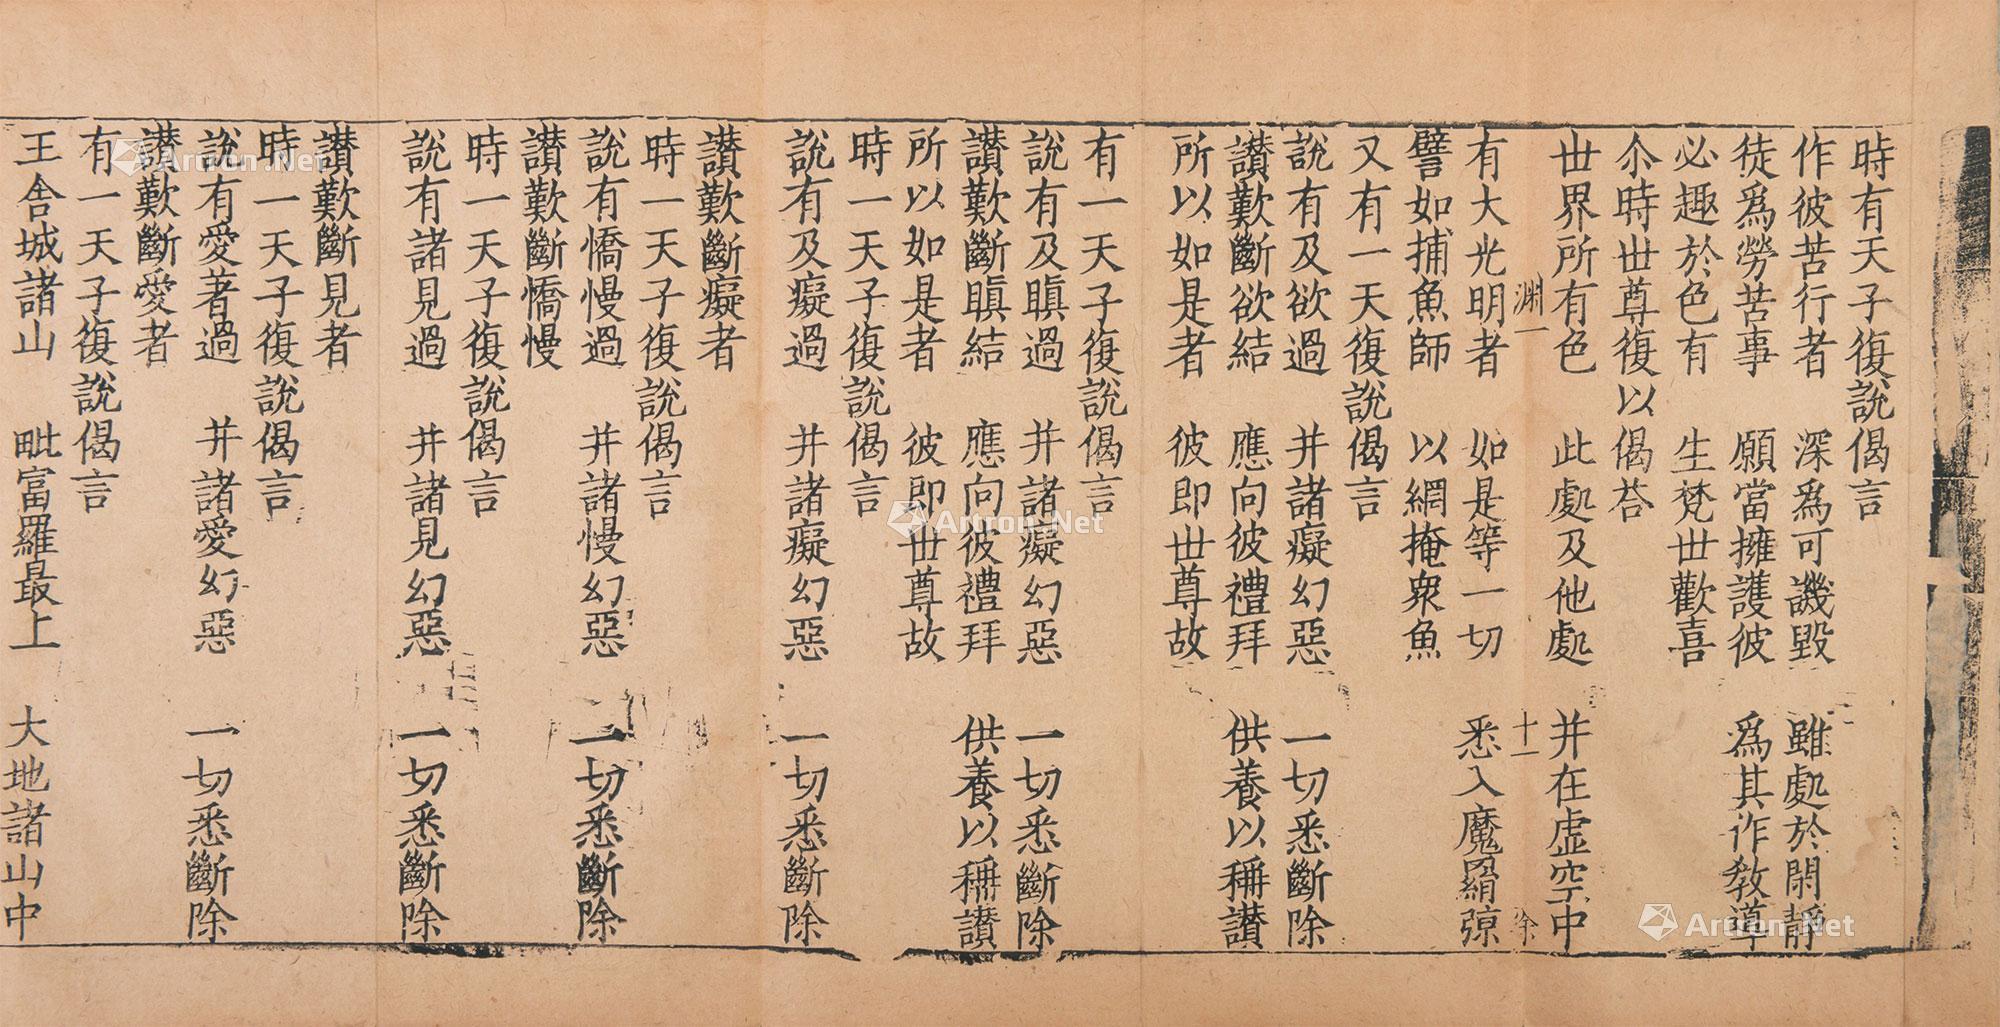 時有天子復說偈言
作彼苦行者　深爲可譏毀　雖處於閑靜
徒爲勞苦事　願當擁護彼　爲其作教導
必趣於色有　生梵世歡喜
尒時世尊復以偈荅
世界所有色　此處及他處　并在虛空中
淵一　十一　徐
有大光明者　如是等一切　悉入魔羂弶
譬如捕魚師　以網掩衆魚
又有一天復說偈言
說有及欲過　并諸癡幻惡　一切悉斷除
讃歎斷欲結　應向彼禮拜　供養以稱讃
所以如是者　彼即世尊故
有一天子復說偈言
說有及瞋過　并諸癡幻惡　一切悉斷除
讃歎斷瞋結　應向彼禮拜　供養以稱讃
所以如是者　彼即世尊故
時一天子復說偈言
說有及癡過　并諸癡幻惡　一切悉斷除
讃歎斷癡者
時一天子復說偈言
說有憍慢過　并諸慢幻惡　一切悉斷除
讃歎斷憍慢
時一天子復說偈言
說有諸見過　并諸見幻惡　一切悉斷除
讃歎斷見者
時一天子復說偈言
說有愛著過　并諸愛幻惡　一切悉斷除
讃歎斷愛者
有一天子復說偈言
王舍城諸山　毗富羅最上　大地諸山中
Artron.Net
Artron.Net
Artron.Net